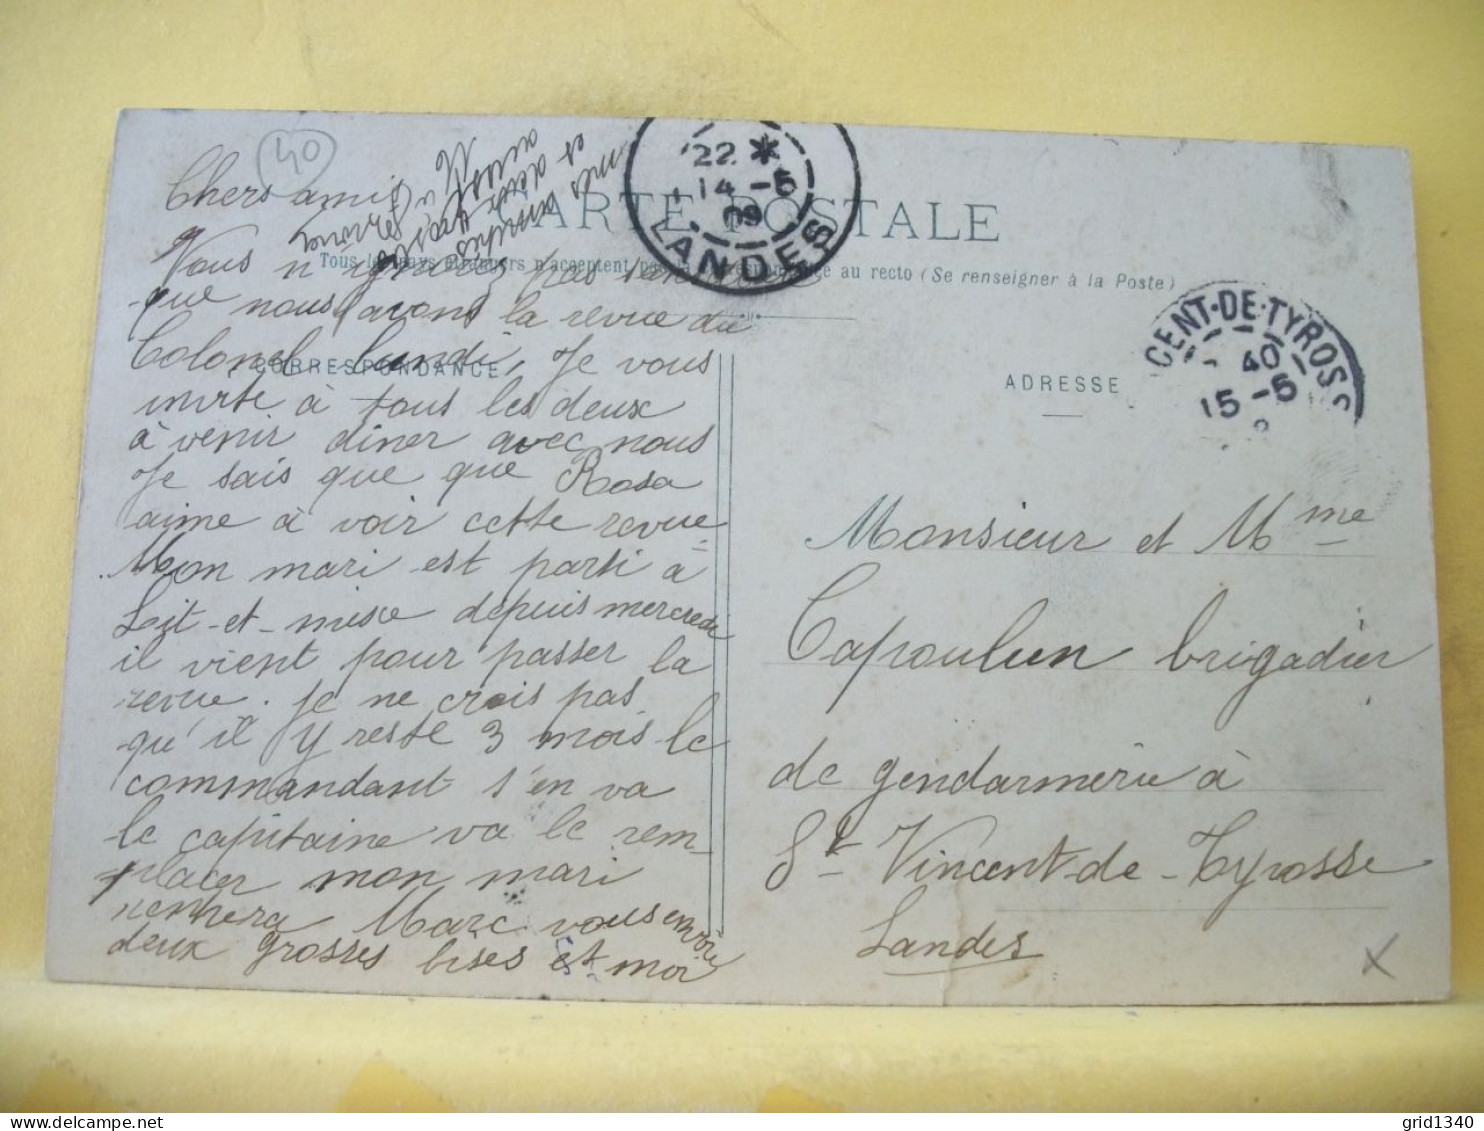 40
Chers amis
Vous n'ignorez pas
que nous avons la revue du
Colonel lundi, Je vous
invite à tous les deux
à venir diner avec nous
Je sais que que Rosa
aime à voir cette revue
Mon mari est parti à
Lit-et-mixe depuis mercredi
il vient pour passer la
revue. Je ne crois pas
qu'il y reste 3 mois le
commandant s'en va
le capitaine va le rem-
placer mon mari
Marc vous envoie
deux grosses bises et moi
aussi
CARTE POSTALE
Tous les pays étrangers n'acceptent pas la correspondance au recto (Se renseigner à la Poste)
CORRESPONDANCE
ADRESSE
22 *
14 - 5
09
LANDES
CENT-DE-TYROSS
40
15 - 5
9
Monsieur et Mme
Capoulun brigadier
de gendarmerie à
St Vincent-de-Tyrosse
Landes
x
grid1340